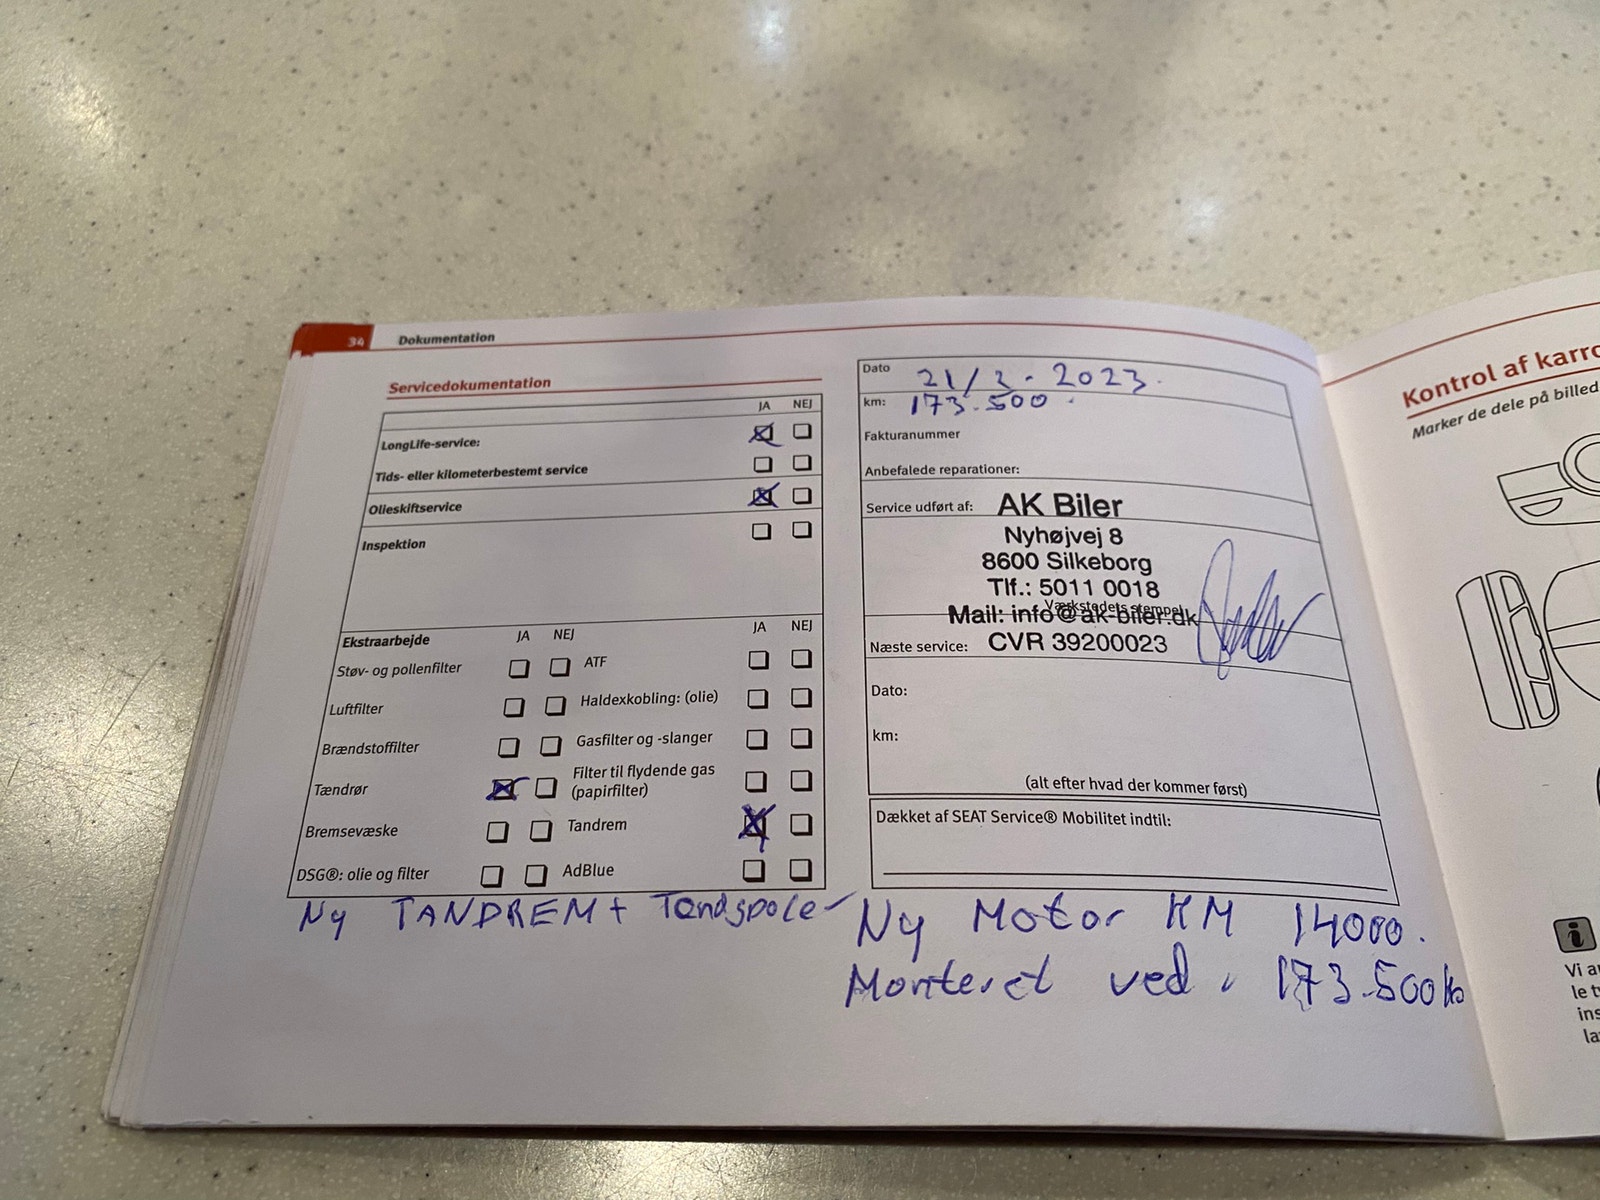 34 Dokumentation
Servicedokumentation
JA NEJ
LongLife-service:
Tids- eller kilometerbestemt service
Olieskiftservice
Inspektion
Ekstraarbejde JA NEJ JA NEJ
Støv- og pollenfilter ATF
Luftfilter Haldexkobling: (olie)
Brændstoffilter Gasfilter og -slanger
Tændrør Filter til flydende gas
(papirfilter)
Bremsevæske Tandrem
DSG®: olie og filter AdBlue
Ny TANDREM + Tændspole
Dato 21/2-2023.
km: 173.500.
Fakturanummer
Anbefalede reparationer:
Service udført af: AK Biler
Nyhøjvej 8
8600 Silkeborg
Tlf.: 5011 0018
Værkstedets stempel
Mail: info@ak-biler.dk
Næste service: CVR 39200023
Dato:
km:
(alt efter hvad der kommer først)
Dækket af SEAT Service® Mobilitet indtil:
Ny Motor KM 14000.
Monteret ved 173.500
Kontrol af karro
Marker de dele på billed
i
Vi
le
ins